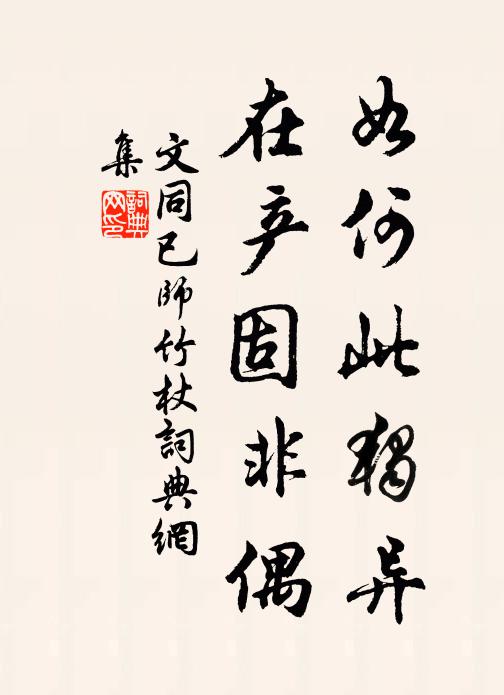 如何此獨异
在产固非偶
文同已師竹杖詞典網
集
詞典網印